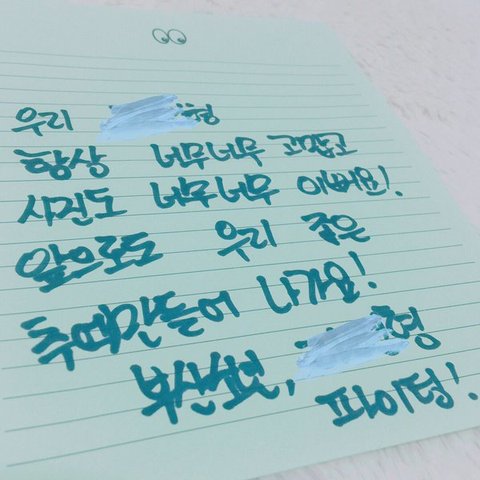 우리 형
항상 너무너무 고맙고
사진도 너무너무 이뻐요!
앞으로도 우리 좋은
추억만들어 나가요!
형
파이텅!